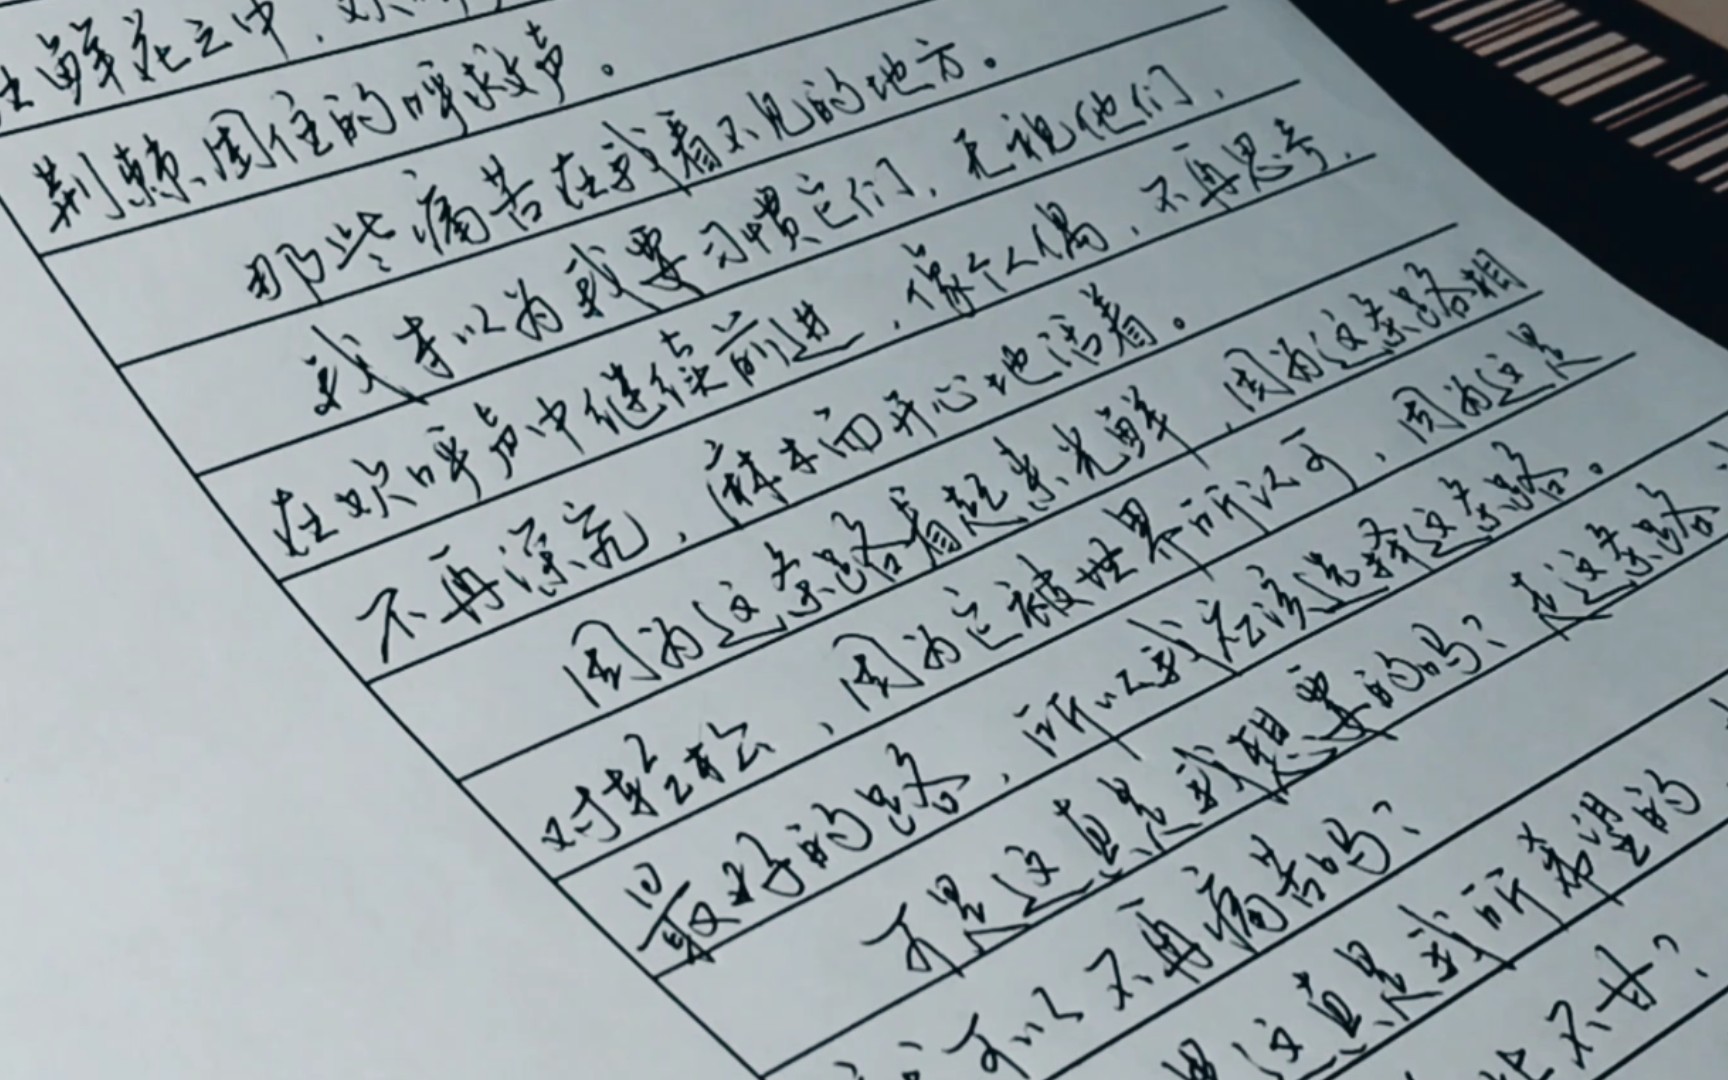 鲜花之中，欢呼
荆棘困住的呼救声。
那些痛苦在我看不见的地方。
我本以为我要习惯它们，无视他们，
在欢呼声中继续前进，像个人偶，不再思考，
不再深究，麻木而开心地活着。
因为这条路看起来光鲜，因为这条路相
对轻松，因为它被世界所认可，因为这是
最好的路，所以我应该选择这条路。
可是这真是我想要的吗？走这条路
可以不再痛苦吗？
这真是我所希望的
不甘？